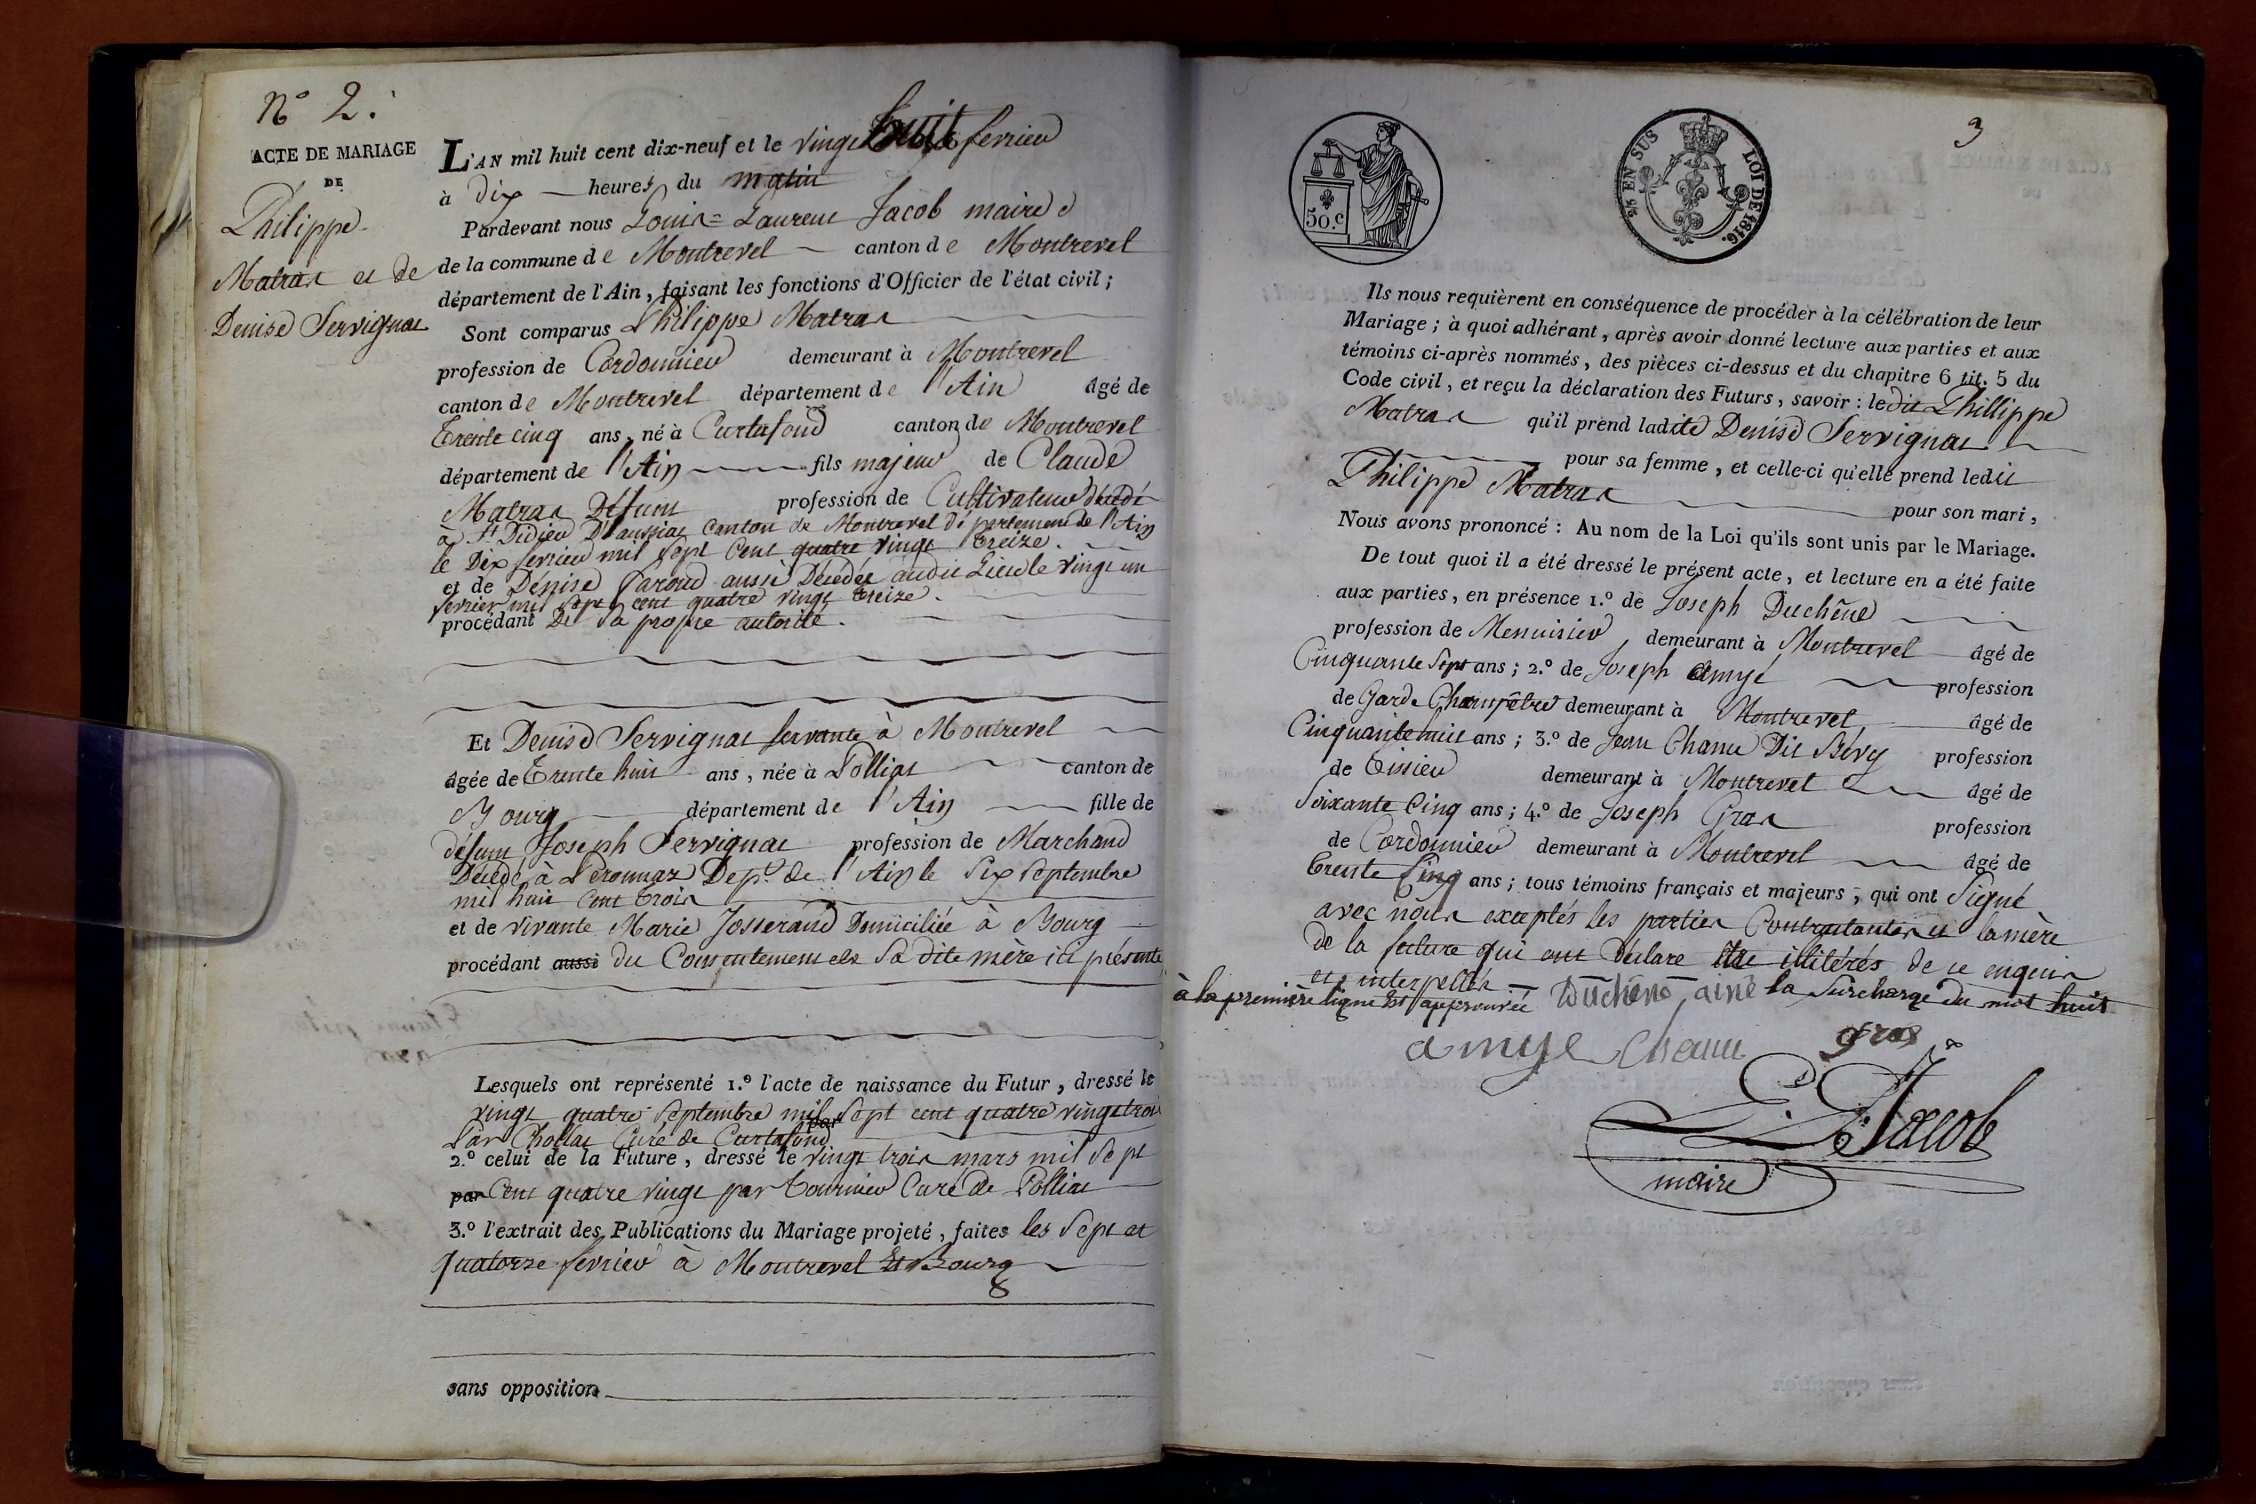 N° 2.
ACTE DE MARIAGE
DE
Philippe
Matras et de
Denise Servignat
L'AN mil huit cent dix-neuf et le vingt huit fevrier
à dix heures du matin
Pardevant nous Louis=Laurent Jacob maire
de la commune de Montrevel canton de Montrevel
département de l'Ain, faisant les fonctions d'Officier de l'état civil;
Sont comparus Philippe Matras
profession de Cordonnier demeurant à Montrevel
canton de Montrevel département de l'Ain âgé de
Trente cinq ans, né à Curtafond canton de Montrevel
département de l'Ain fils majeur de Claude
Matras Défunt profession de Cultivateur décédé
à St Didier D'aussiat canton de Montrevel département de l'Ain
le Dix fevrier mil sept Cent quatre vingt treize.
et de Dénise Paroud aussi Décédée audit Lieu le vingt un
fevrier mil sept cent quatre vingt treize.
procédant De sa propre autorité.
Et Denise Servignat servante à Montrevel
âgée de Trente huit ans, née à Polliat canton de
Bourg département de l'Ain fille de
défunt Joseph Servignat profession de Marchand
Décédé à Peronnaz Dept. de l'Ain le Six Septembre
mil huit Cent Trois
et de vivante Marie Josserand Domiciliée à Bourg
procédant aussi du Consentement de Sa dite mère ici présente
Lesquels ont représenté 1.° l'acte de naissance du Futur, dressé le
vingt quatre Septembre mil Sept cent quatre vingt trois
par
Par Chollat Curé de Curtafond
2.° celui de la Future, dressé le vingt trois mars mil Sept
par Cent quatre vingt par Tournier Curé De Polliat
3.° l'extrait des Publications du Mariage projeté, faites les Sept et
quatorze fevrier à Montrevel Et Bourg
sans opposition
3
50.c
25 EN SUS
LOI DE 1816.
Ils nous requièrent en conséquence de procéder à la célébration de leur
Mariage; à quoi adhérant, après avoir donné lecture aux parties et aux
témoins ci-après nommés, des pièces ci-dessus et du chapitre 6 tit. 5 du
Code civil, et reçu la déclaration des Futurs, savoir: ledit Phillippe
Matras qu'il prend ladite Denise Servignat
pour sa femme, et celle-ci qu'elle prend ledit
Philippe Matras pour son mari,
Nous avons prononcé: Au nom de la Loi qu'ils sont unis par le Mariage.
De tout quoi il a été dressé le présent acte, et lecture en a été faite
aux parties, en présence 1.° de Joseph Duchêne
profession de Menuisier, demeurant à Montrevel âgé de
Cinquante Sept ans; 2.° de Joseph amyé profession
de Garde Champêtre demeurant à Montrevel âgé de
Cinquante huit ans; 3.° de Jean Chanu Dit Bévy profession
de Tissier demeurant à Montrevel âgé de
Soixante Cinq ans; 4.° de Joseph Gras profession
de Cordonnier demeurant à Montrevel âgé de
trente Cinq ans; tous témoins français et majeurs, qui ont Signé
avec nous exceptés les parties Contractantes et la mère
de la future qui ont Déclaré être illitérés de ce enquis
et interpellés
à la première ligne Est approuvée Duchêne ainé la Surcharge du mot huit
amye Chanu gras
L. L. Jacob
maire